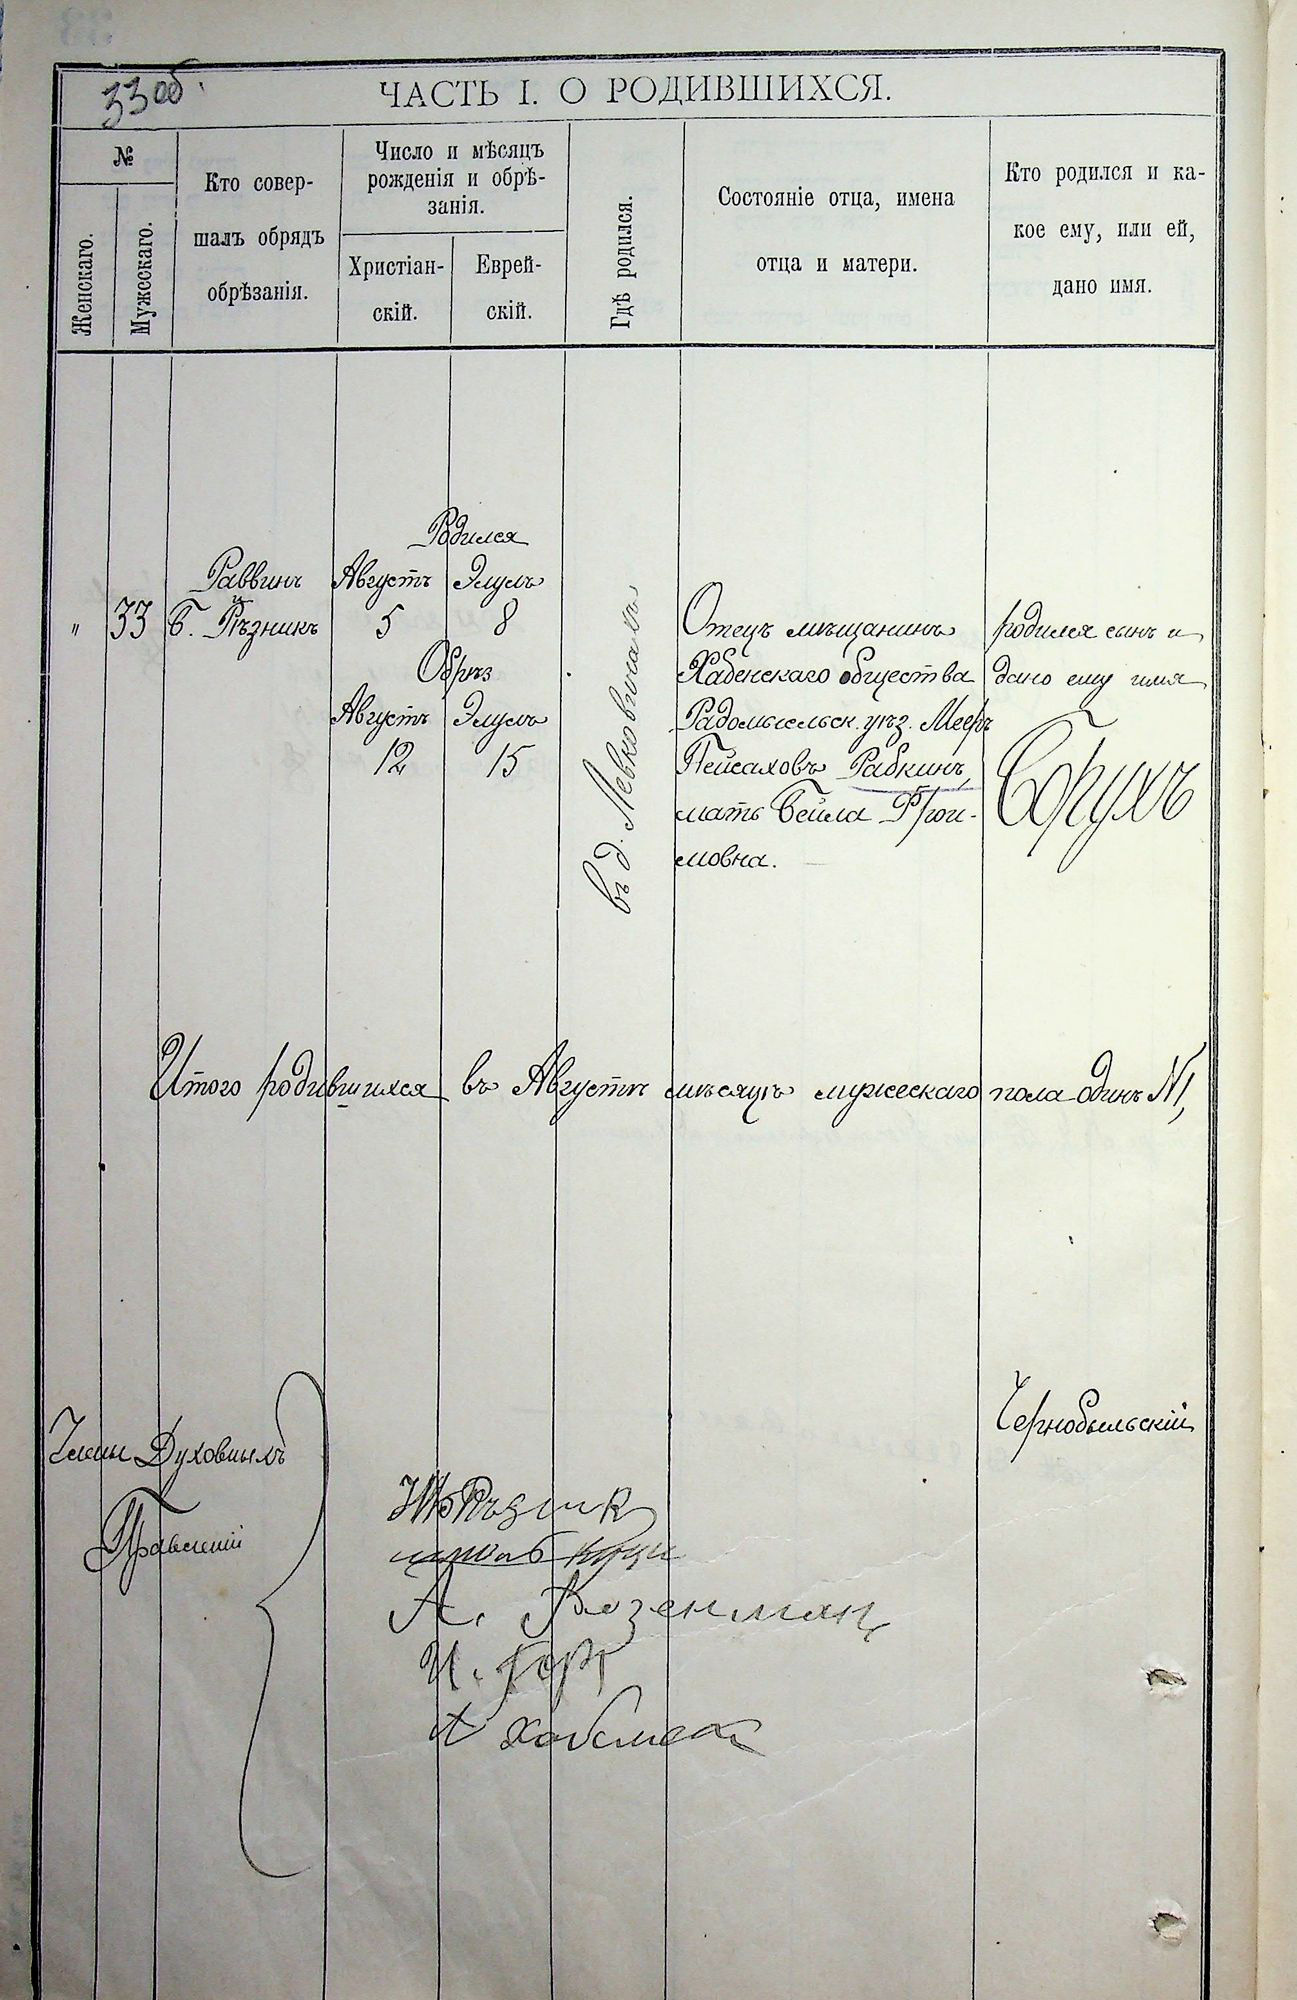 33 об.
ЧАСТЬ I. О РОДИВШИХСЯ.
№
Женскаго.
Мужескаго.
Кто совер-
шалъ обрядъ
обрѣзанія.
Число и мѣсяцъ
рожденія и обрѣ-
занія.
Христіан-
скій.
Еврей-
скій.
Гдѣ родился.
Состояніе отца, имена
отца и матери.
Кто родился и ка-
кое ему, или ей,
дано имя.
" 33
Раввинъ
Б. Рѣзникъ
Родился
Августъ Элулъ
5 8
Обрѣз
Августъ Элулъ
12 15
въ д. Левковичахъ
Отецъ мѣщанинъ
Хабенскаго общества
Радомысльск. уѣз. Мееръ
Пейсаховъ Рабкинъ,
мать Бейла
мовна.
родился сынъ и
дано ему имя
Борухъ
Итого родившихся въ Августѣ мѣсяцѣ мужескаго пола одинъ №1,
Чернобыльскій
Члены Духовныхъ
Правленій
Рѣзник
А. Розенман
И.
А